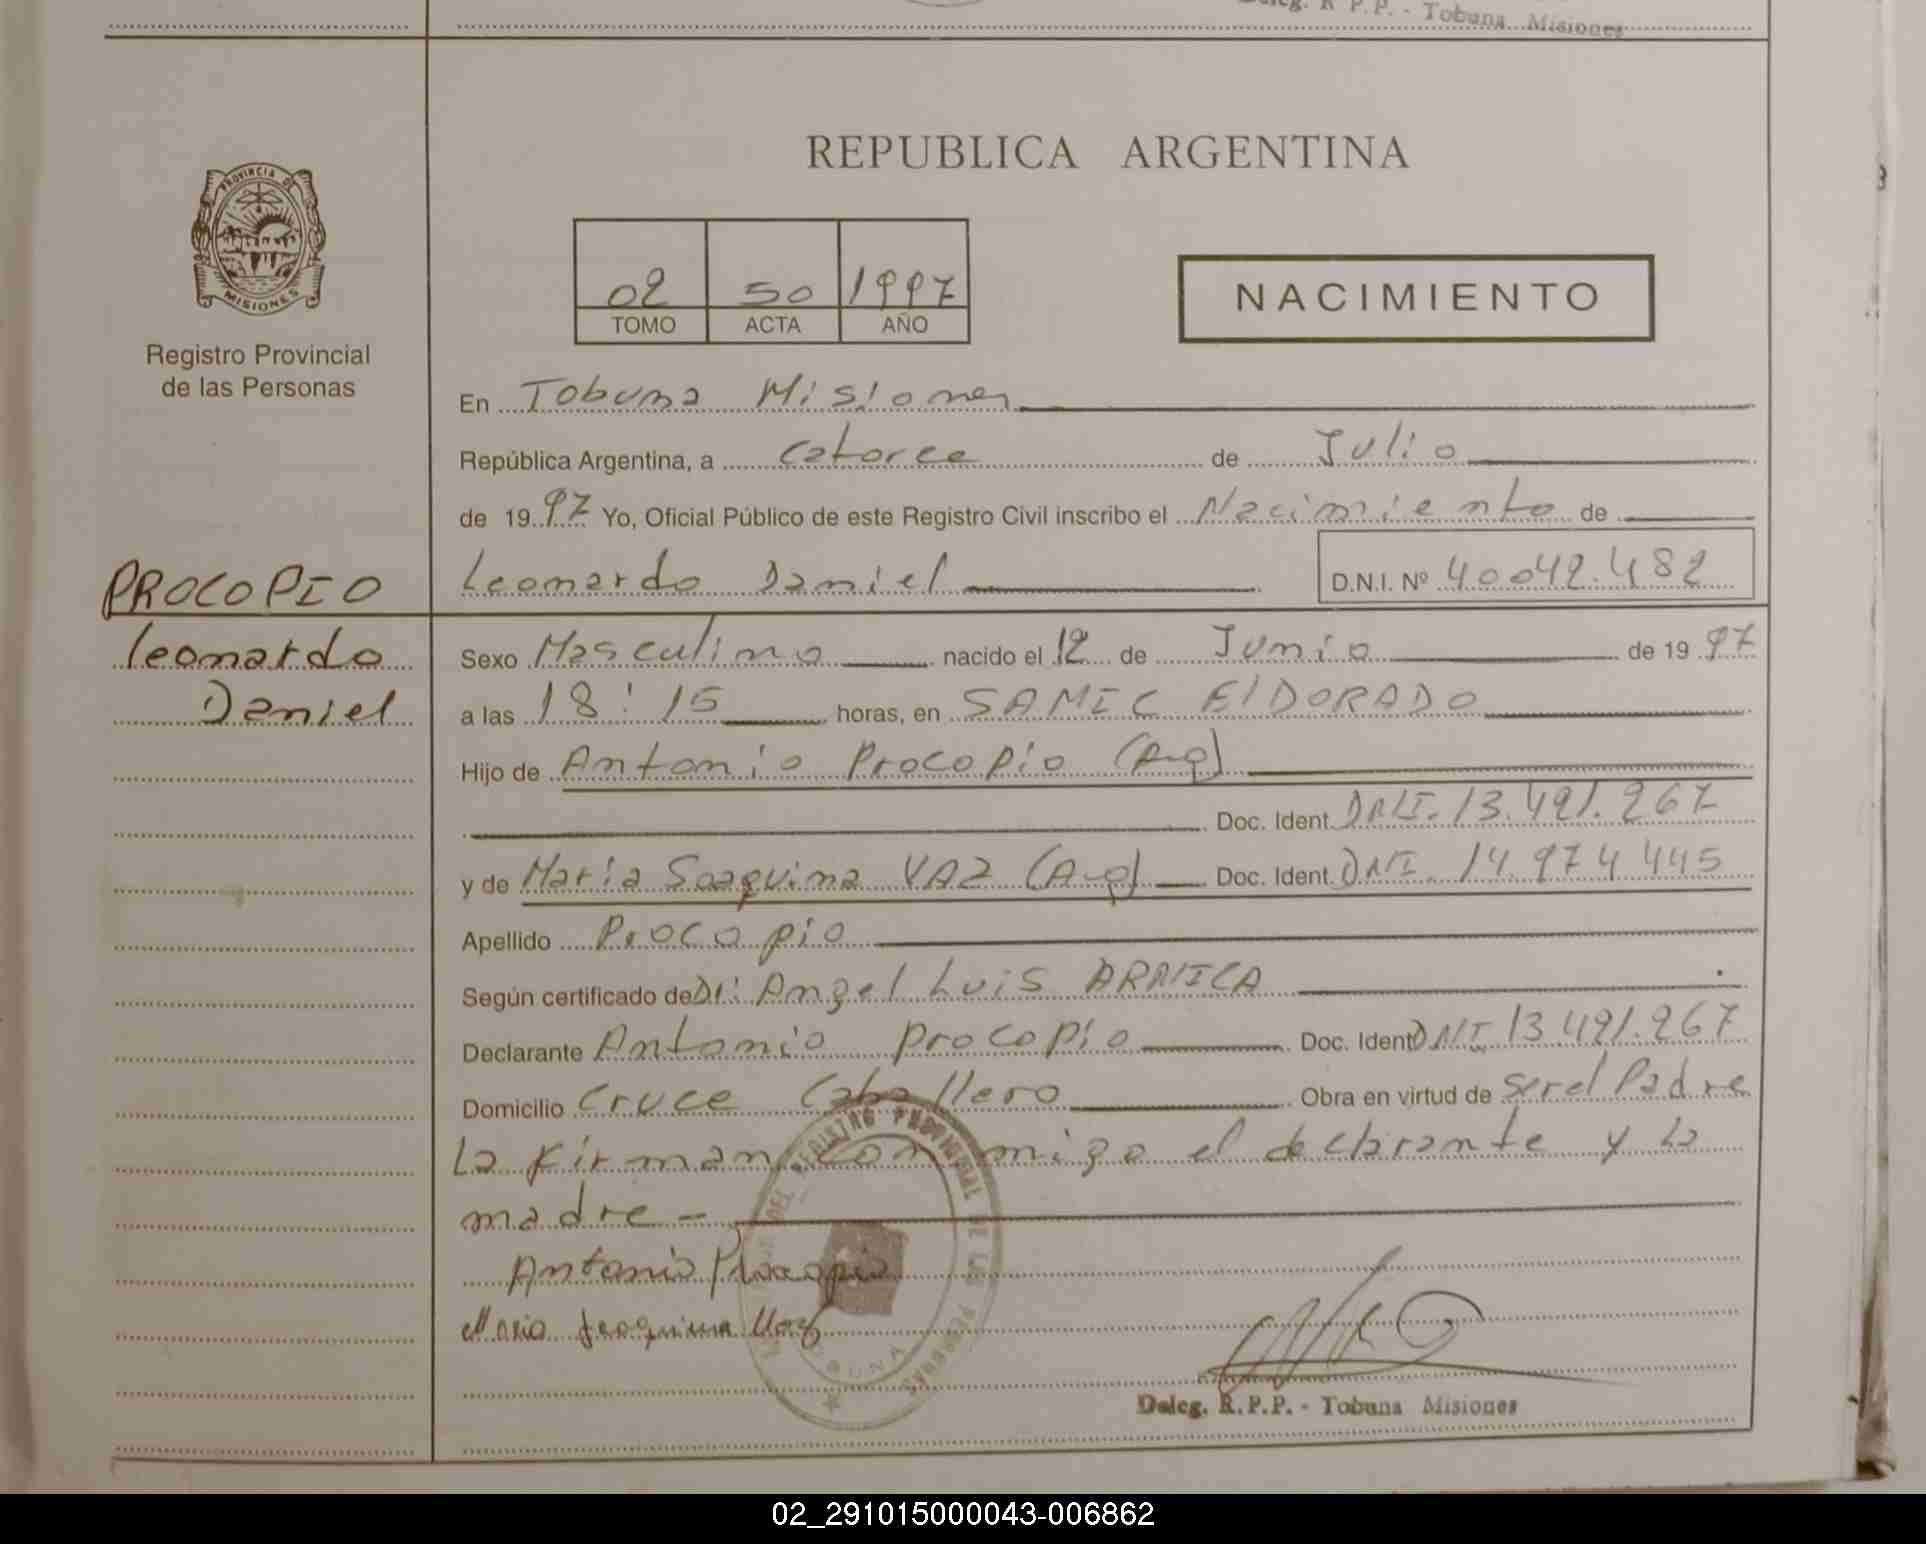 Deleg. R.P.P. - Tobuna Misiones
REPUBLICA ARGENTINA
PROVINCIA DE
MISIONES
Registro Provincial
de las Personas
02 50 1997
TOMO ACTA AÑO
NACIMIENTO
En Tobuna Misiones
República Argentina, a catorce de Julio
de 1997 Yo, Oficial Público de este Registro Civil inscribo el Nacimiento de
Leonardo Daniel D.N.I. Nº 40042.482
PROCOPIO
Leonardo
Daniel
Sexo Masculino nacido el 12 de Junio de 1997
a las 18:15 horas, en SAMIC ElDORADO
Hijo de Antonio Procopio (Arg)
Doc. Ident. DNI. 13.491.267
y de Maria Soaquina VAZ (Arg) Doc. Ident. DNI. 14.974.445
Apellido Procopio
Según certificado de Dr: Angel Luis ARNICA
Declarante Antonio Procopio Doc. Ident DNI 13.491.267
Domicilio Cruce Caballero Obra en virtud de Ser el Padre
La Firman conmigo el declarante y La
madre -
Antonio Procopio
Maria Joaquina Vaz
DEL REGISTRO PROVINCIAL DE LAS PERSONAS
TOBUNA
Deleg. R.P.P. - Tobuna Misiones
02_291015000043-006862